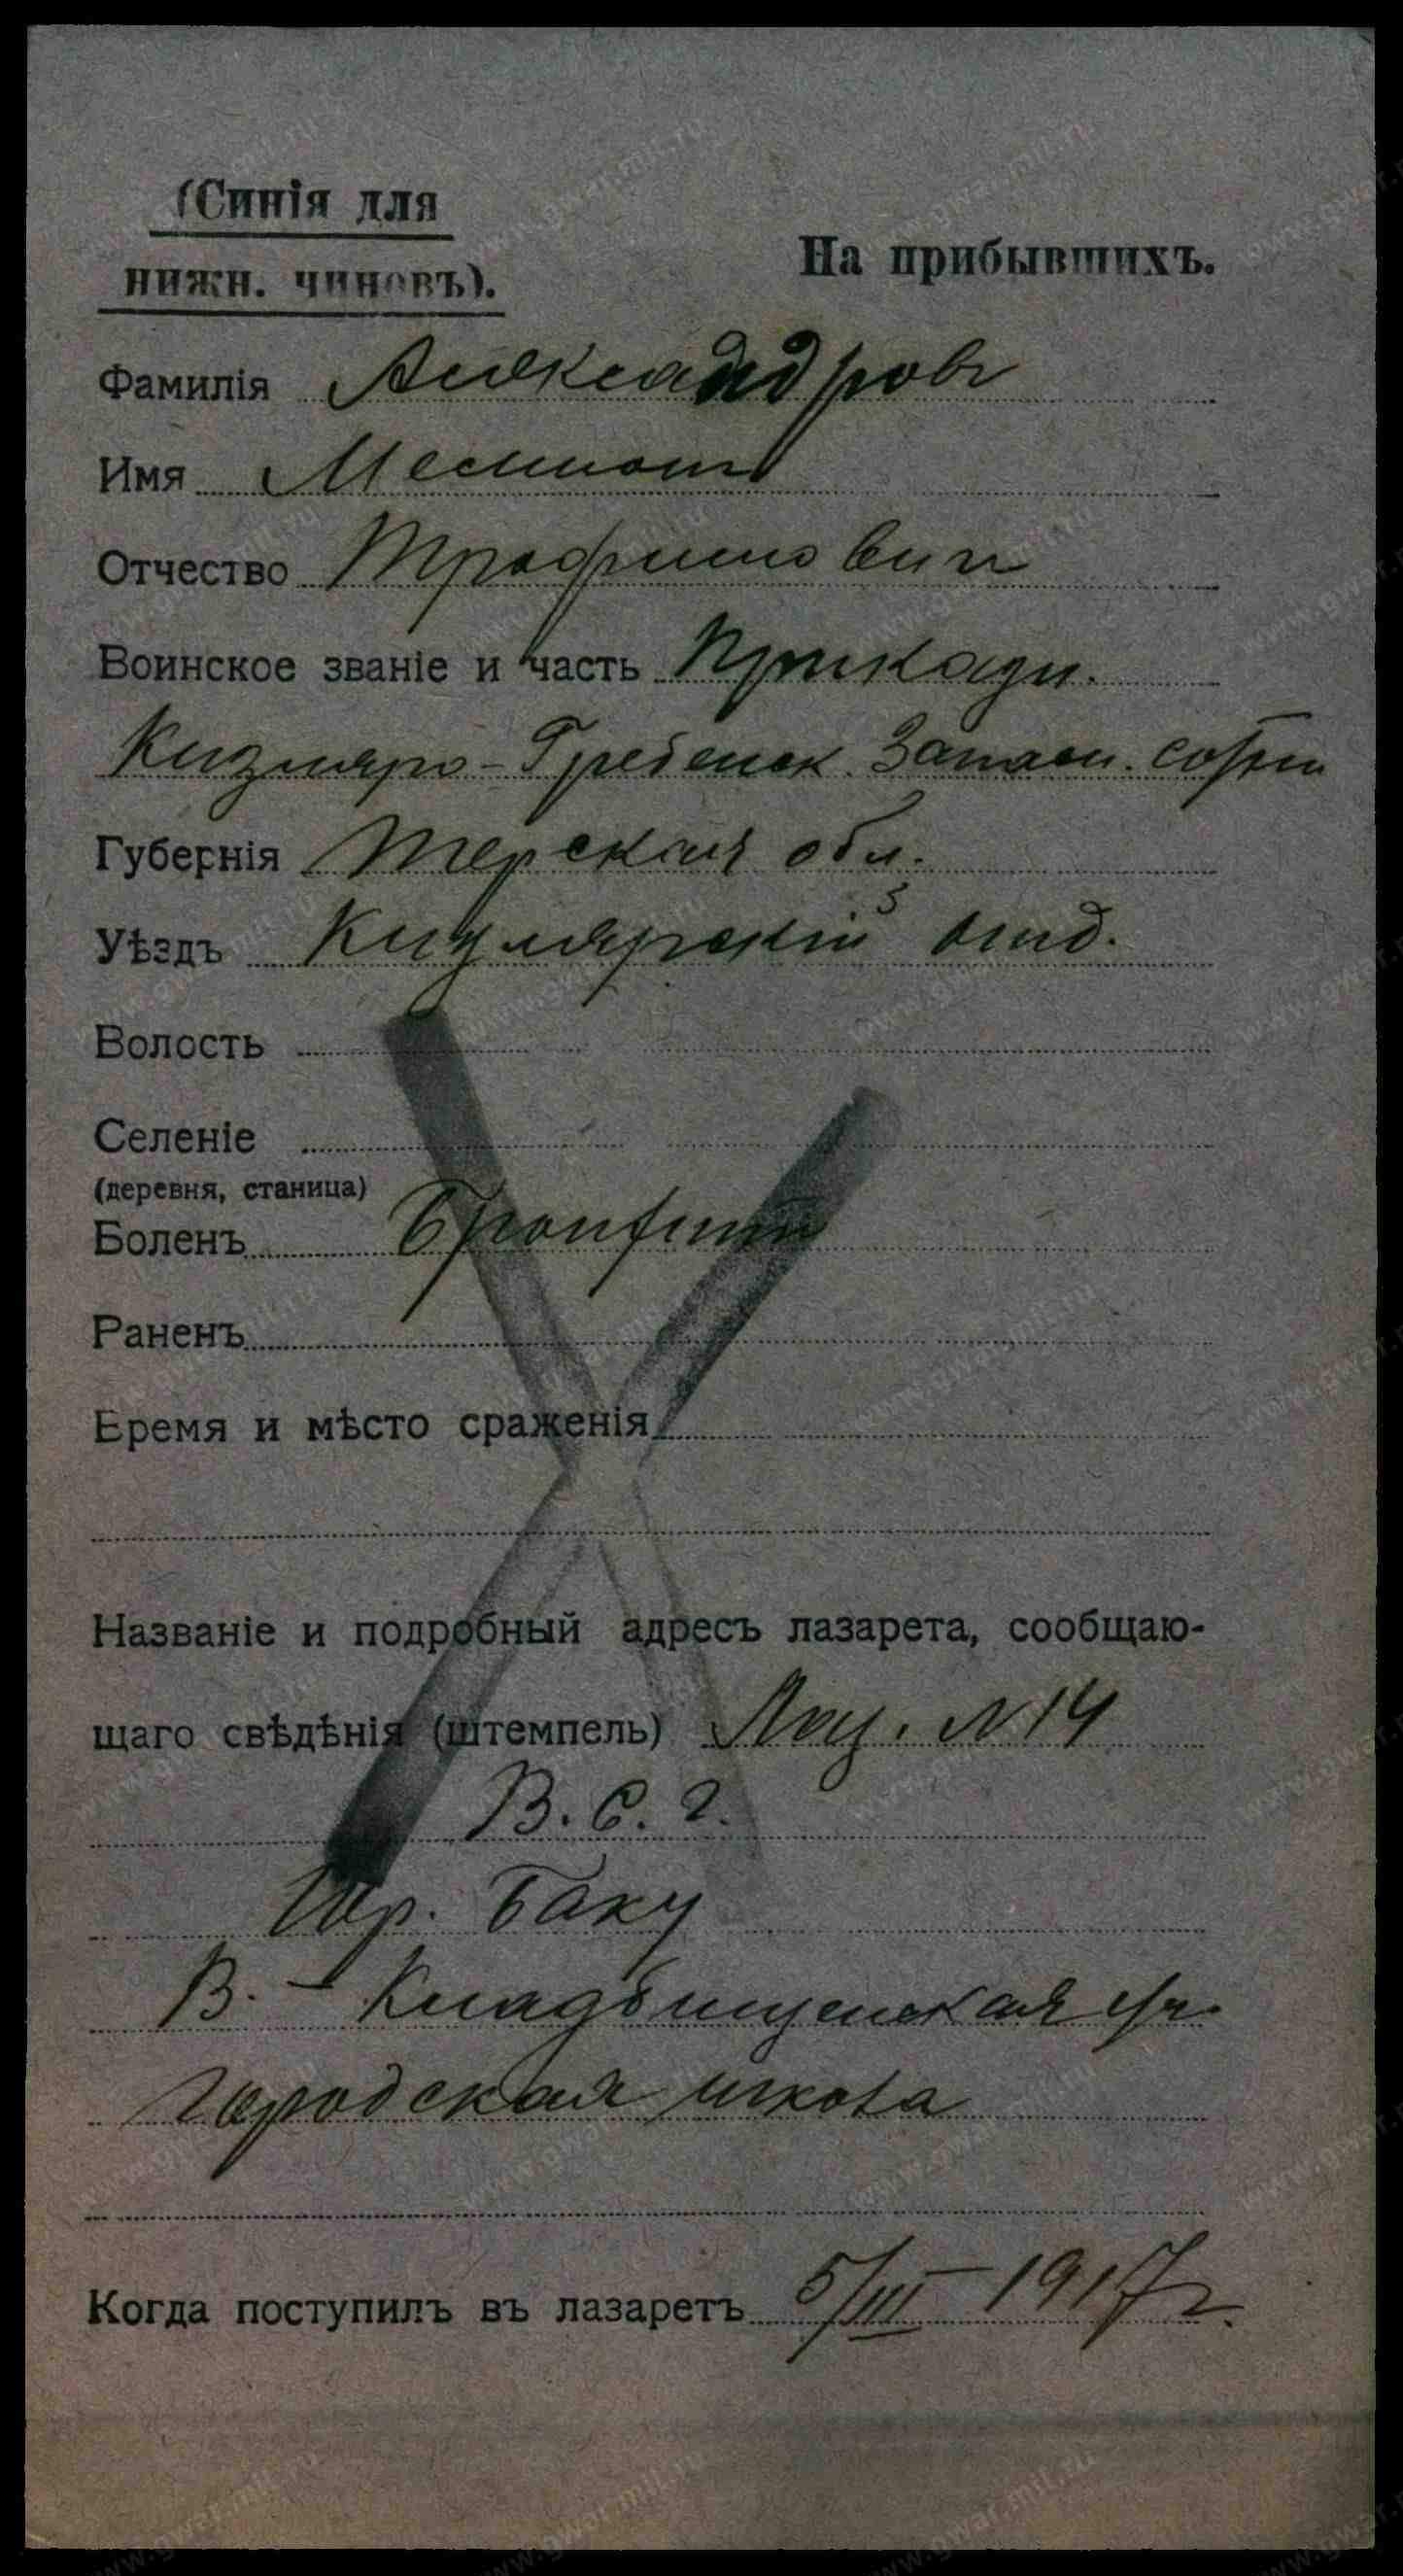 (Синія для
нижн. чиновъ).
На прибывшихъ.
Фамилія Александровъ
Имя
Отчество Трофимович
Воинское званіе и часть Приказн.
Кизляро-Гребенск. Запасн. сотни
Губернія Терская обл.
Уѣздъ Кизлярскій отд.
Волость
Селеніе
(деревня, станица)
Боленъ Бронхит
Раненъ
Время и мѣсто сраженія
Названіе и подробный адресъ лазарета, сообщаю-
щаго свѣдѣнія (штемпель) Лаз. N 14
В. С. Г.
Гор. Баку
В.-Кладбищенская ул.
городская школа
Когда поступилъ въ лазаретъ 5/III 1917 г.
www.gwar.mil.ru